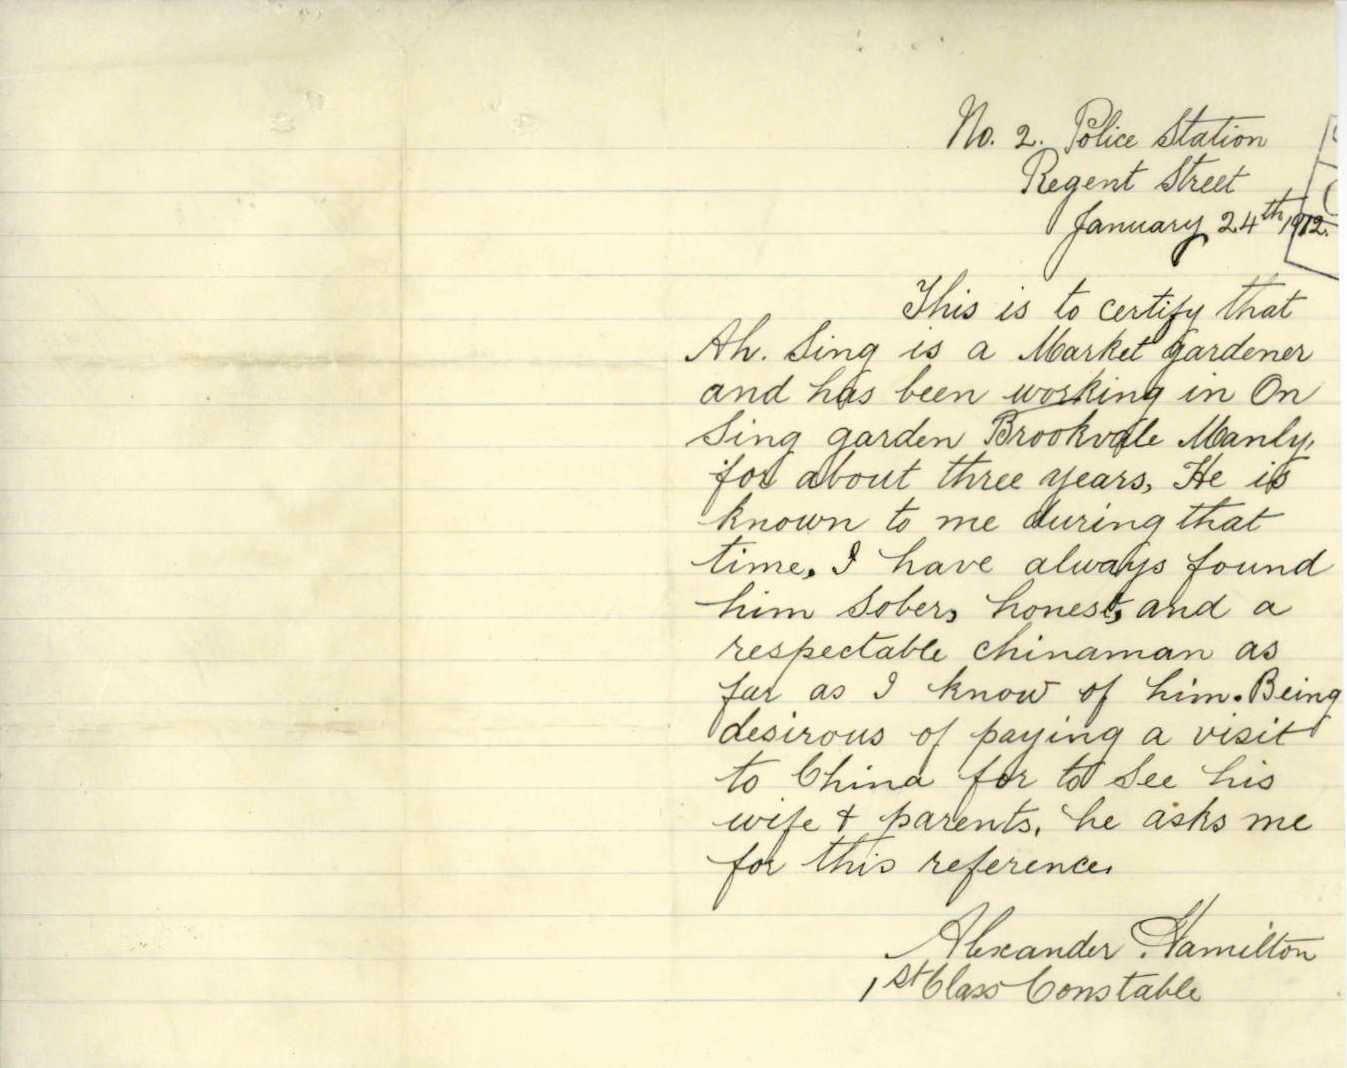 No. 2. Police Station
Regent Street
January 24th 1912.
This is to certify that
Ah. Sing is a Market gardener
and has been working in On
Sing garden Brookvale Manly,
for about three years, He is
known to me during that
time. I have always found
him sober, honest, and a
respectable chinaman as
far as I know of him. Being
desirous of paying a visit
to China for to see his
wife & parents, he asks me
for this reference.
Alexander Hamilton
1st Class Constable